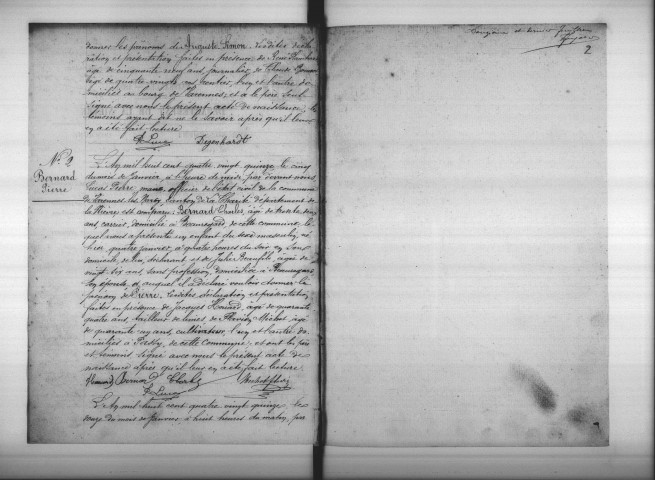 donner les prénoms de Auguste Simon. Lesdites décla
ration et présentation faites en présence de René
âgé de cinquante neuf ans, journalier, de Claude
âgé de quatre vingts ans, rentier, l'un et l'autre do
miciliés au bourg de Varennes; et a le père seul
signé avec nous le présent acte de naissance, les
témoins ayant dit ne le savoir après qu'il leur
en a été fait lecture
Degenhardt
N° 2
Bernard
Pierre
L'An mil huit cent quatre vingt quinze le cinq
du mois de Janvier à l'heure de midi par devant nous
Pierre, maire officier de l'état civil de la commune
de Varennes les Narcy, canton de La Charité département de
la Nièvre est comparu Bernard Charles, âgé de trente
ans, carrier, domicilié à Beauregard de cette commune, le
quel nous a présenté un enfant du sexe masculin, né
hier quatre janvier, à quatre heures du soir en son
domicile, de lui, déclarant et de Julie âgée de
vingt six ans sans profession, domiciliée à Beauregard
son épouse, et auquel il a déclaré vouloir donner le
prénom de Pierre. Lesdites déclaration et présentation
faites en présence de Jacques âgé de quarante
quatre ans, tailleur de limes, de Michot âgé
de quarante un ans, cultivateur, l'un et l'autre do
miciliés à de cette commune; et ont les père
et témoins signé avec nous le présent acte de
naissance après qu'il leur en a été fait lecture.
Bernard Charles
L'An mil huit cent quatre vingt quinze le
douze du mois de Janvier à huit heures du matin, par
2